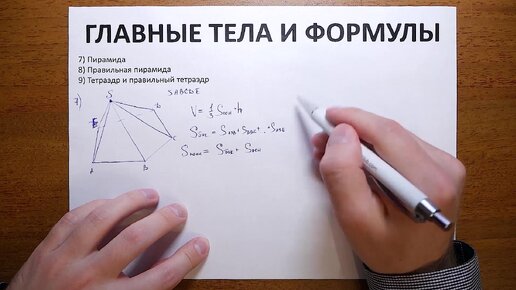 ГЛАВНЫЕ ТЕЛА И ФОРМУЛЫ
7) Пирамида
8) Правильная пирамида
9) Тетраэдр и правильный тетраэдр
SABCDE
7)
S
E
D
C
A
B
V = 1/3 Sосн · h
Sбок = SSAB + SSBC + ... + SSAE
Sполн = Sбок + Sосн